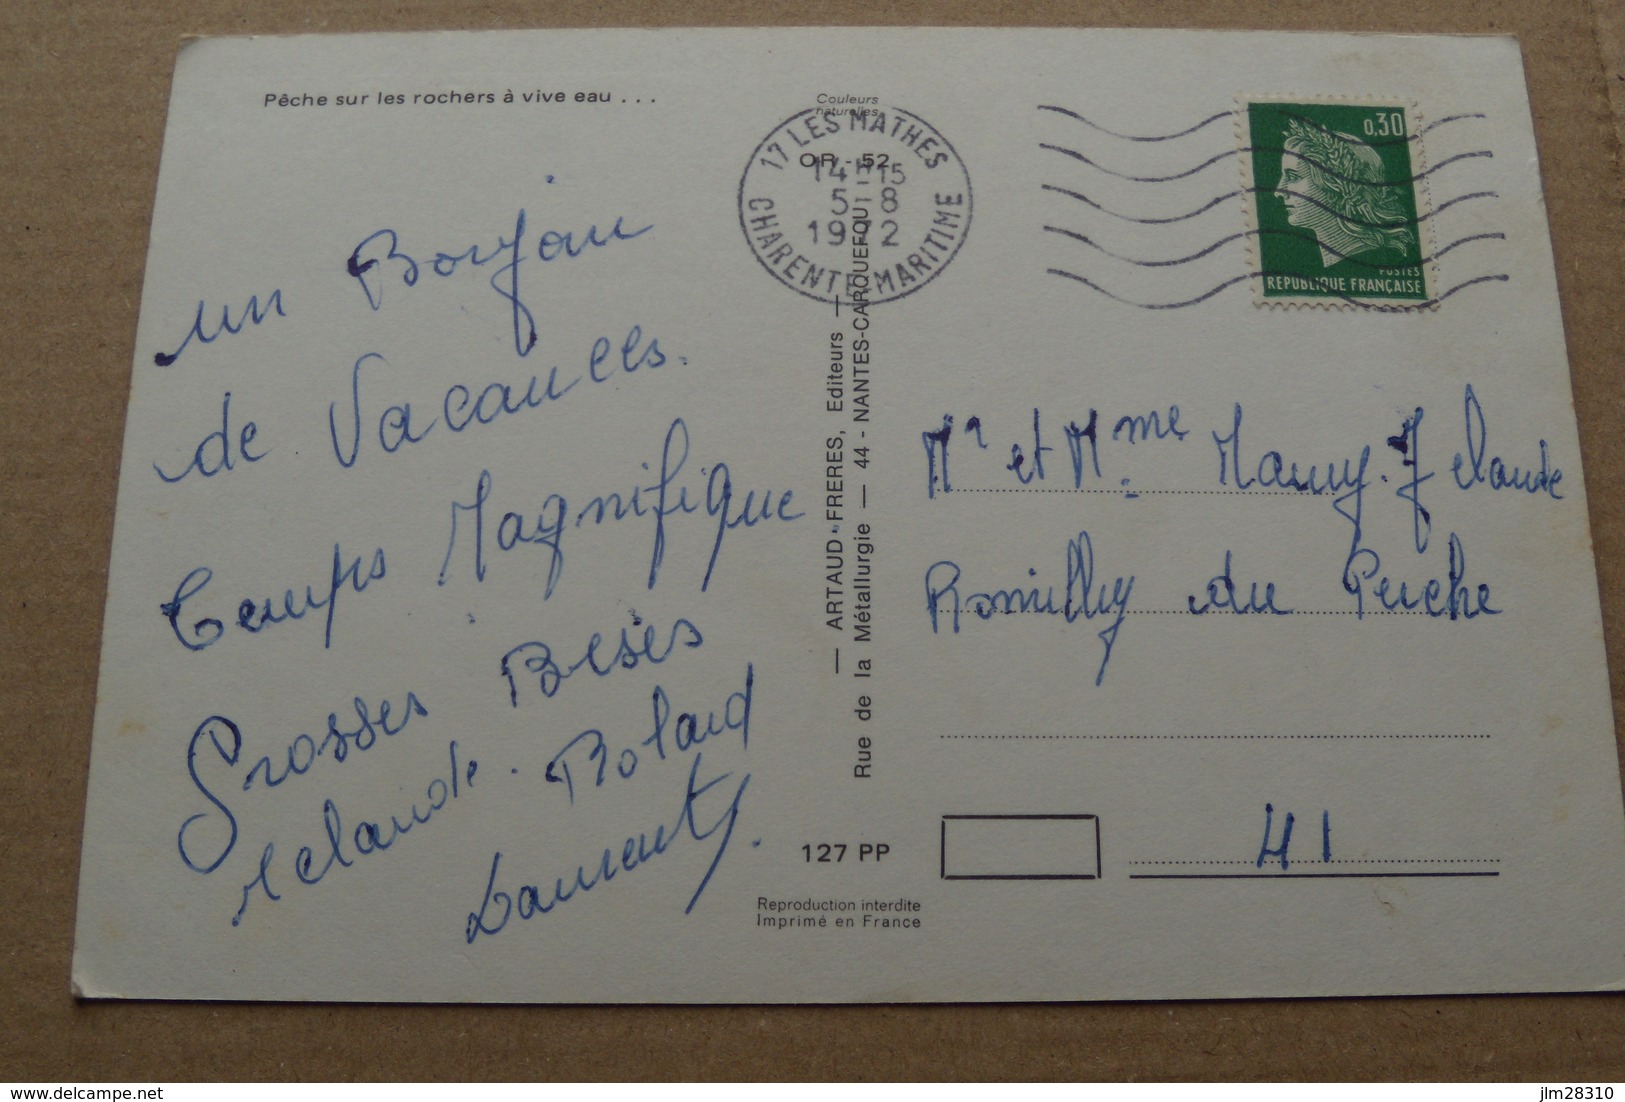 Pêche sur les rochers à vive eau . . .
Couleurs
naturelles
17 LES MATHES
OR - 52
14H15
5-8
1972
CHARENTE-MARITIME
0,30
POSTES
REPUBLIQUE FRANÇAISE
un Bonjou
de Vacances.
Temps Magnifique
Grosses Bises
Claude. Roland
Laurent.
— ARTAUD FRERES, Editeurs —
Rue de la Métallurgie — 44 - NANTES-CARQUEFOU
Mr et Mme J Claude
Romilly du Perche
41
127 PP
Reproduction interdite
Imprimé en France
delcampe.net
jlm28310